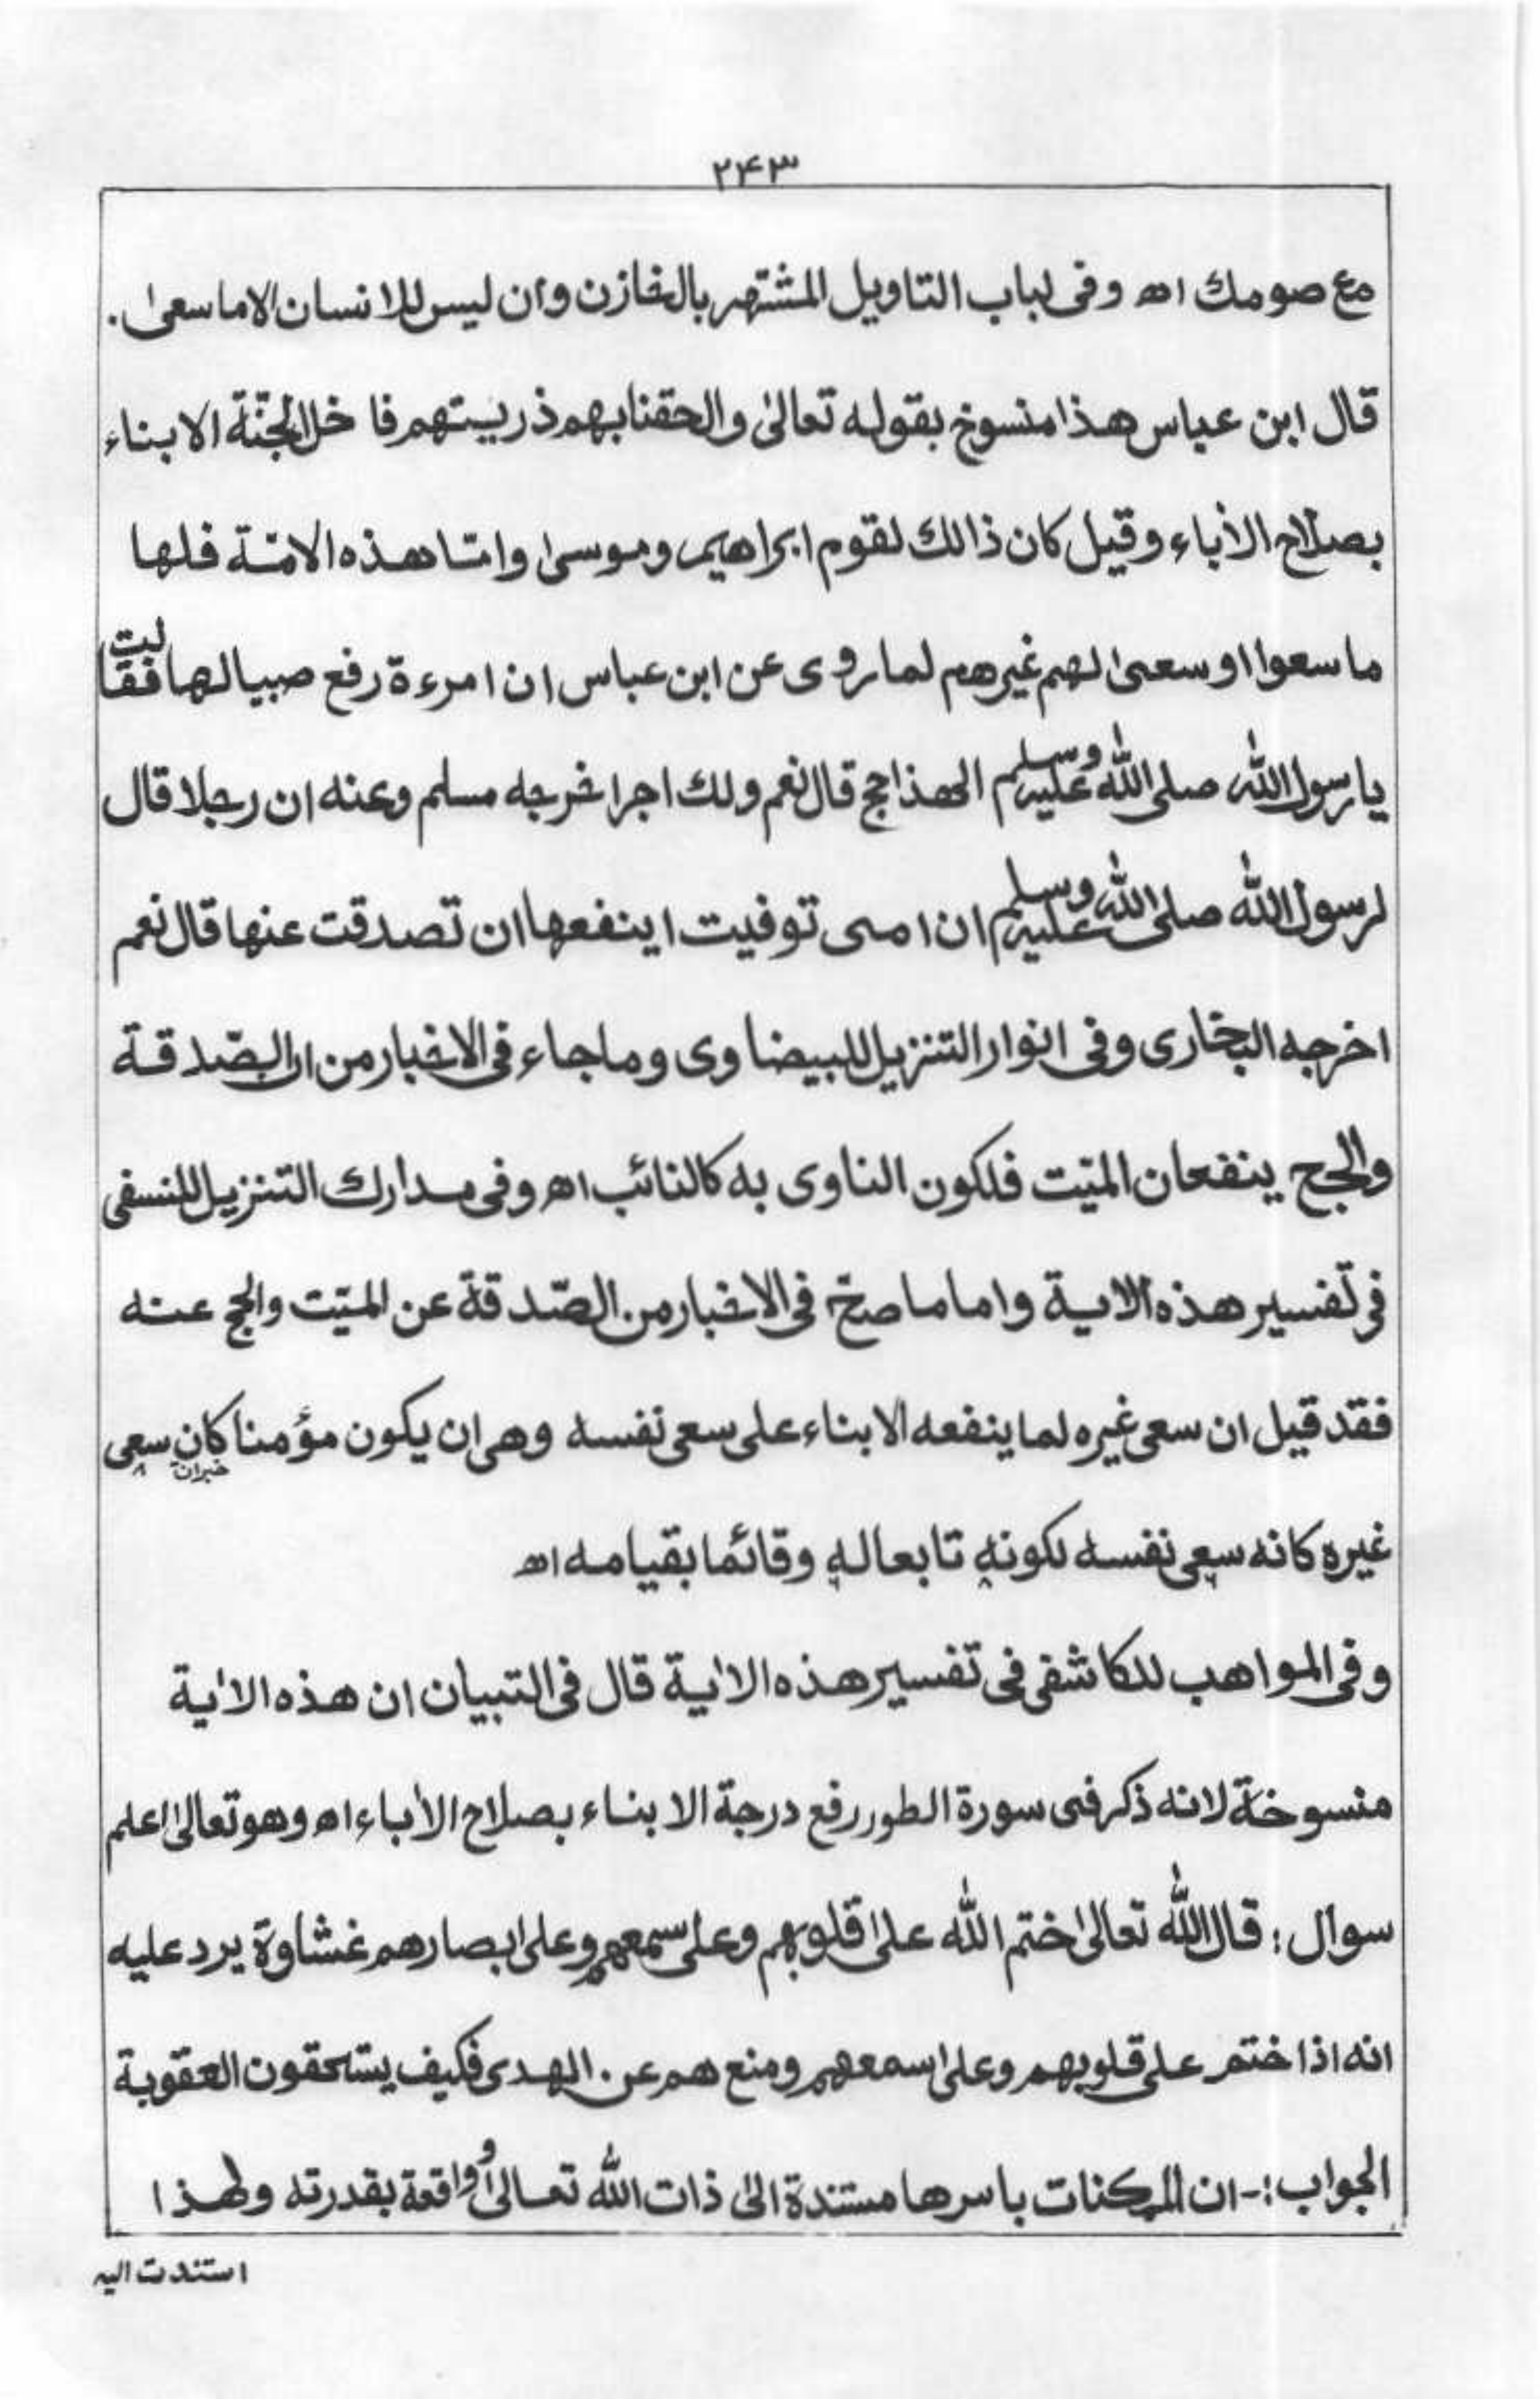 ۲۴۳
مع صومك اه وفى لباب التاويل المشتهر بالخازن وان ليس للانسان الا ما سعىٰ.
قال ابن عباس هذا منسوخ بقوله تعالىٰ والحقنا بهم ذريتهم فا خل الجنّة الابناء
بصلاح الأباء وقيل كان ذالك لقوم ابراهيم وموسىٰ وامّا هذه الامّة فلها
ما سعوا او سعىٰ لهم غيرهم لما روى عن ابن عباس ان امرءة رفع صبيا لها فقالت
يا رسول الله صلى الله عليه وسلم الهذا حج قال نعم ولك اجر اخرجه مسلم وعنه ان رجلا قال
لرسول الله صلى الله عليه وسلم ان امى توفيت اينفعها ان تصدقت عنها قال نعم
اخرجه البخارى وفى انوار التنزيل للبيضاوى وما جاء فى الاخبار من ان الصّدقة
والحج ينفعان الميّت فلكون الناوى به كالنائب اه وفى مدارك التنزيل للنسفى
فى تفسير هذه الاية واما ما صحّ فى الاخبار من الصّدقة عن الميّت والحج عنه
فقد قيل ان سعى غيره لما ينفعه الابناء على سعى نفسه وهى ان يكون مؤمنا كان سعى
خبران
غيره كانه سعى نفسه لكونه تابعا له وقائما بقيامه اه
وفى المواهب للكاشفى فى تفسير هذه الاٰية قال فى التبيان ان هذه الاٰية
منسوخة لانه ذكر فى سورة الطور رفع درجة الابناء بصلاح الأباء اه وهو تعالىٰ اعلم
سوال: قال الله تعالىٰ ختم الله علىٰ قلوبهم وعلى سمعهم وعلى ابصارهم غشاوة يرد عليه
انه اذا ختم على قلوبهم وعلىٰ سمعهم ومنع هم عن الهدى فكيف يستحقون العقوبة
الجواب:- ان الممكنات باسرها مستندة الىٰ ذات الله تعالىٰ وواقعة بقدرته ولهذا
استندت اليه